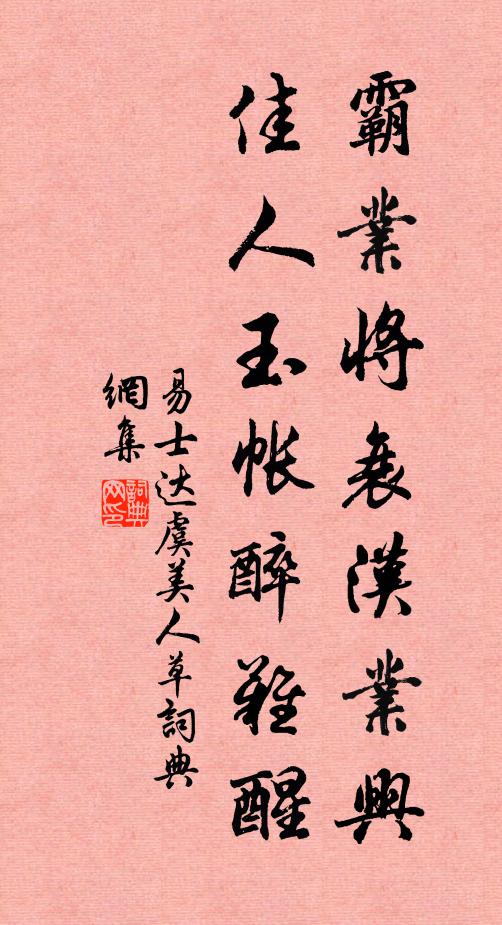 霸業將衰漢業興
佳人玉帳醉難醒
易士达虞美人草詞典
網集
詞典网印